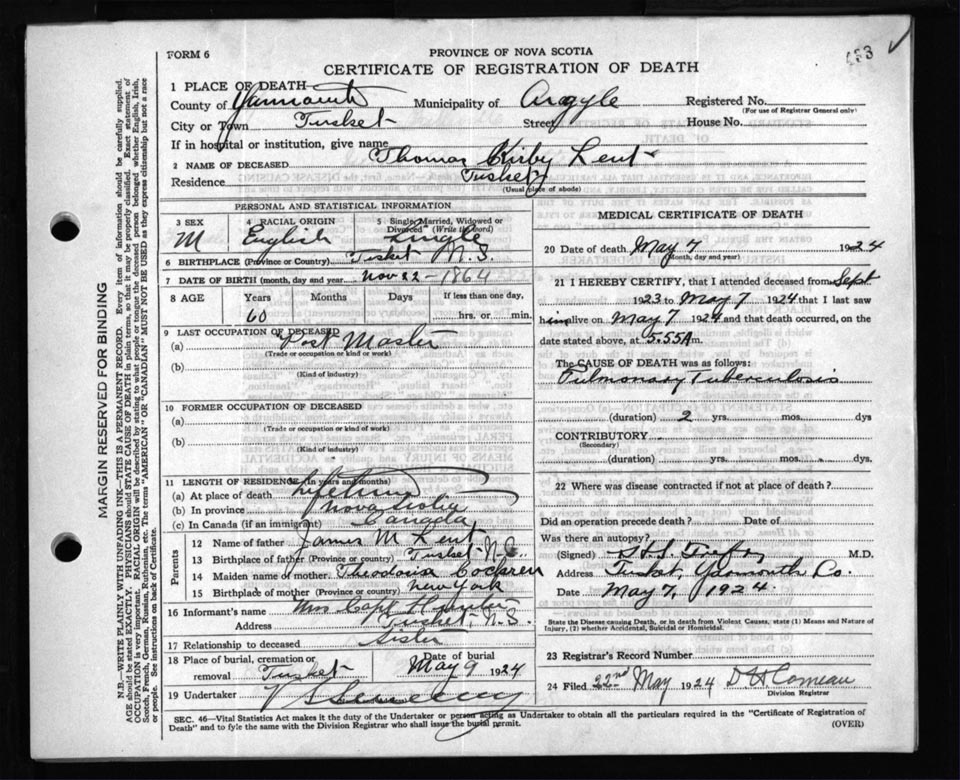 FORM 6
PROVINCE OF NOVA SCOTIA
CERTIFICATE OF REGISTRATION OF DEATH
1 PLACE OF DEATH
County of Yarmouth Municipality of Argyle Registered No.
(For use of Registrar General only)
City or Town Tusket Street House No.
If in hospital or institution, give name
2 NAME OF DECEASED Thomas Kirby Lent
Residence Tusket
(Usual place of abode)
PERSONAL AND STATISTICAL INFORMATION
3 SEX 4 RACIAL ORIGIN 5 Single, Married, Widowed or Divorced (Write the word)
M English Single
6 BIRTHPLACE (Province or Country) Tusket N.S.
7 DATE OF BIRTH (month, day and year) Nov 22 - 1864
8 AGE Years Months Days If less than one day,
60 hrs. or min.
9 LAST OCCUPATION OF DECEASED
(a) Post Master
(Trade or occupation or kind or work)
(b)
(Kind of industry)
10 FORMER OCCUPATION OF DECEASED
(a)
(Trade or occupation or kind of work)
(b)
(Kind of industry)
11 LENGTH OF RESIDENCE (in years and months)
(a) At place of death Lifetime
(b) In province Nova Scotia
(c) In Canada (if an immigrant) Canada
Parents
12 Name of father James M Lent
13 Birthplace of father (Province or country) Tusket N.S.
14 Maiden name of mother
15 Birthplace of mother (Province or country) New York
16 Informant's name Mrs Capt
Address Tusket, N.S.
17 Relationship to deceased Sister
18 Place of burial, cremation or removal Tusket Date of burial May 9 1924
19 Undertaker
MEDICAL CERTIFICATE OF DEATH
20 Date of death May 7 1924
(Month, day and year)
21 I HEREBY CERTIFY, that I attended deceased from Sept
1923 to May 7 1924 that I last saw
him alive on May 7 1924 and that death occurred, on
date stated above, at 5.55 A m.
The CAUSE OF DEATH was as follows:
Pulmonary Tuberculosis
(duration) 2 yrs. mos. dys
CONTRIBUTORY
(Secondary)
(duration) yrs. mos. dys.
22 Where was disease contracted if not at place of death?
Did an operation precede death? Date of
Was there an autopsy?
(Signed) M.D.
Address Tusket, Yarmouth Co.
Date May 7, 1924.
State the Disease causing Death, or in death from Violent Causes, state (1) Means and Nature of
Injury, (2) whether Accidental, Suicidal or Homicidal.
23 Registrar's Record Number
24 Filed 22nd May 1924 D H Comeau
Division Registrar
SEC. 46—Vital Statistics Act makes it the duty of the Undertaker or person acting as Undertaker to obtain all the particulars required in the "Certificate of Registration of
Death" and to fyle the same with the Division Registrar who shall issue the burial permit.
(OVER)
MARGIN RESERVED FOR BINDING
N.B.—WRITE PLAINLY WITH UNFADING INK—THIS IS A PERMANENT RECORD. Every item of information should be carefully supplied.
AGE should be stated EXACTLY. PHYSICIANS should STATE CAUSE OF DEATH in plain terms, so that it may be properly classified. Exact statement of
OCCUPATION is very important. RACIAL ORIGIN will be described by stating to what people or tongue the deceased person belonged whether English, Irish,
Scotch, French, German, Russian, Ruthenian, etc. The terms "AMERICAN" or "CANADIAN" MUST NOT BE USED as they express citizenship but not a race
or people. See instructions on back of Certificate.